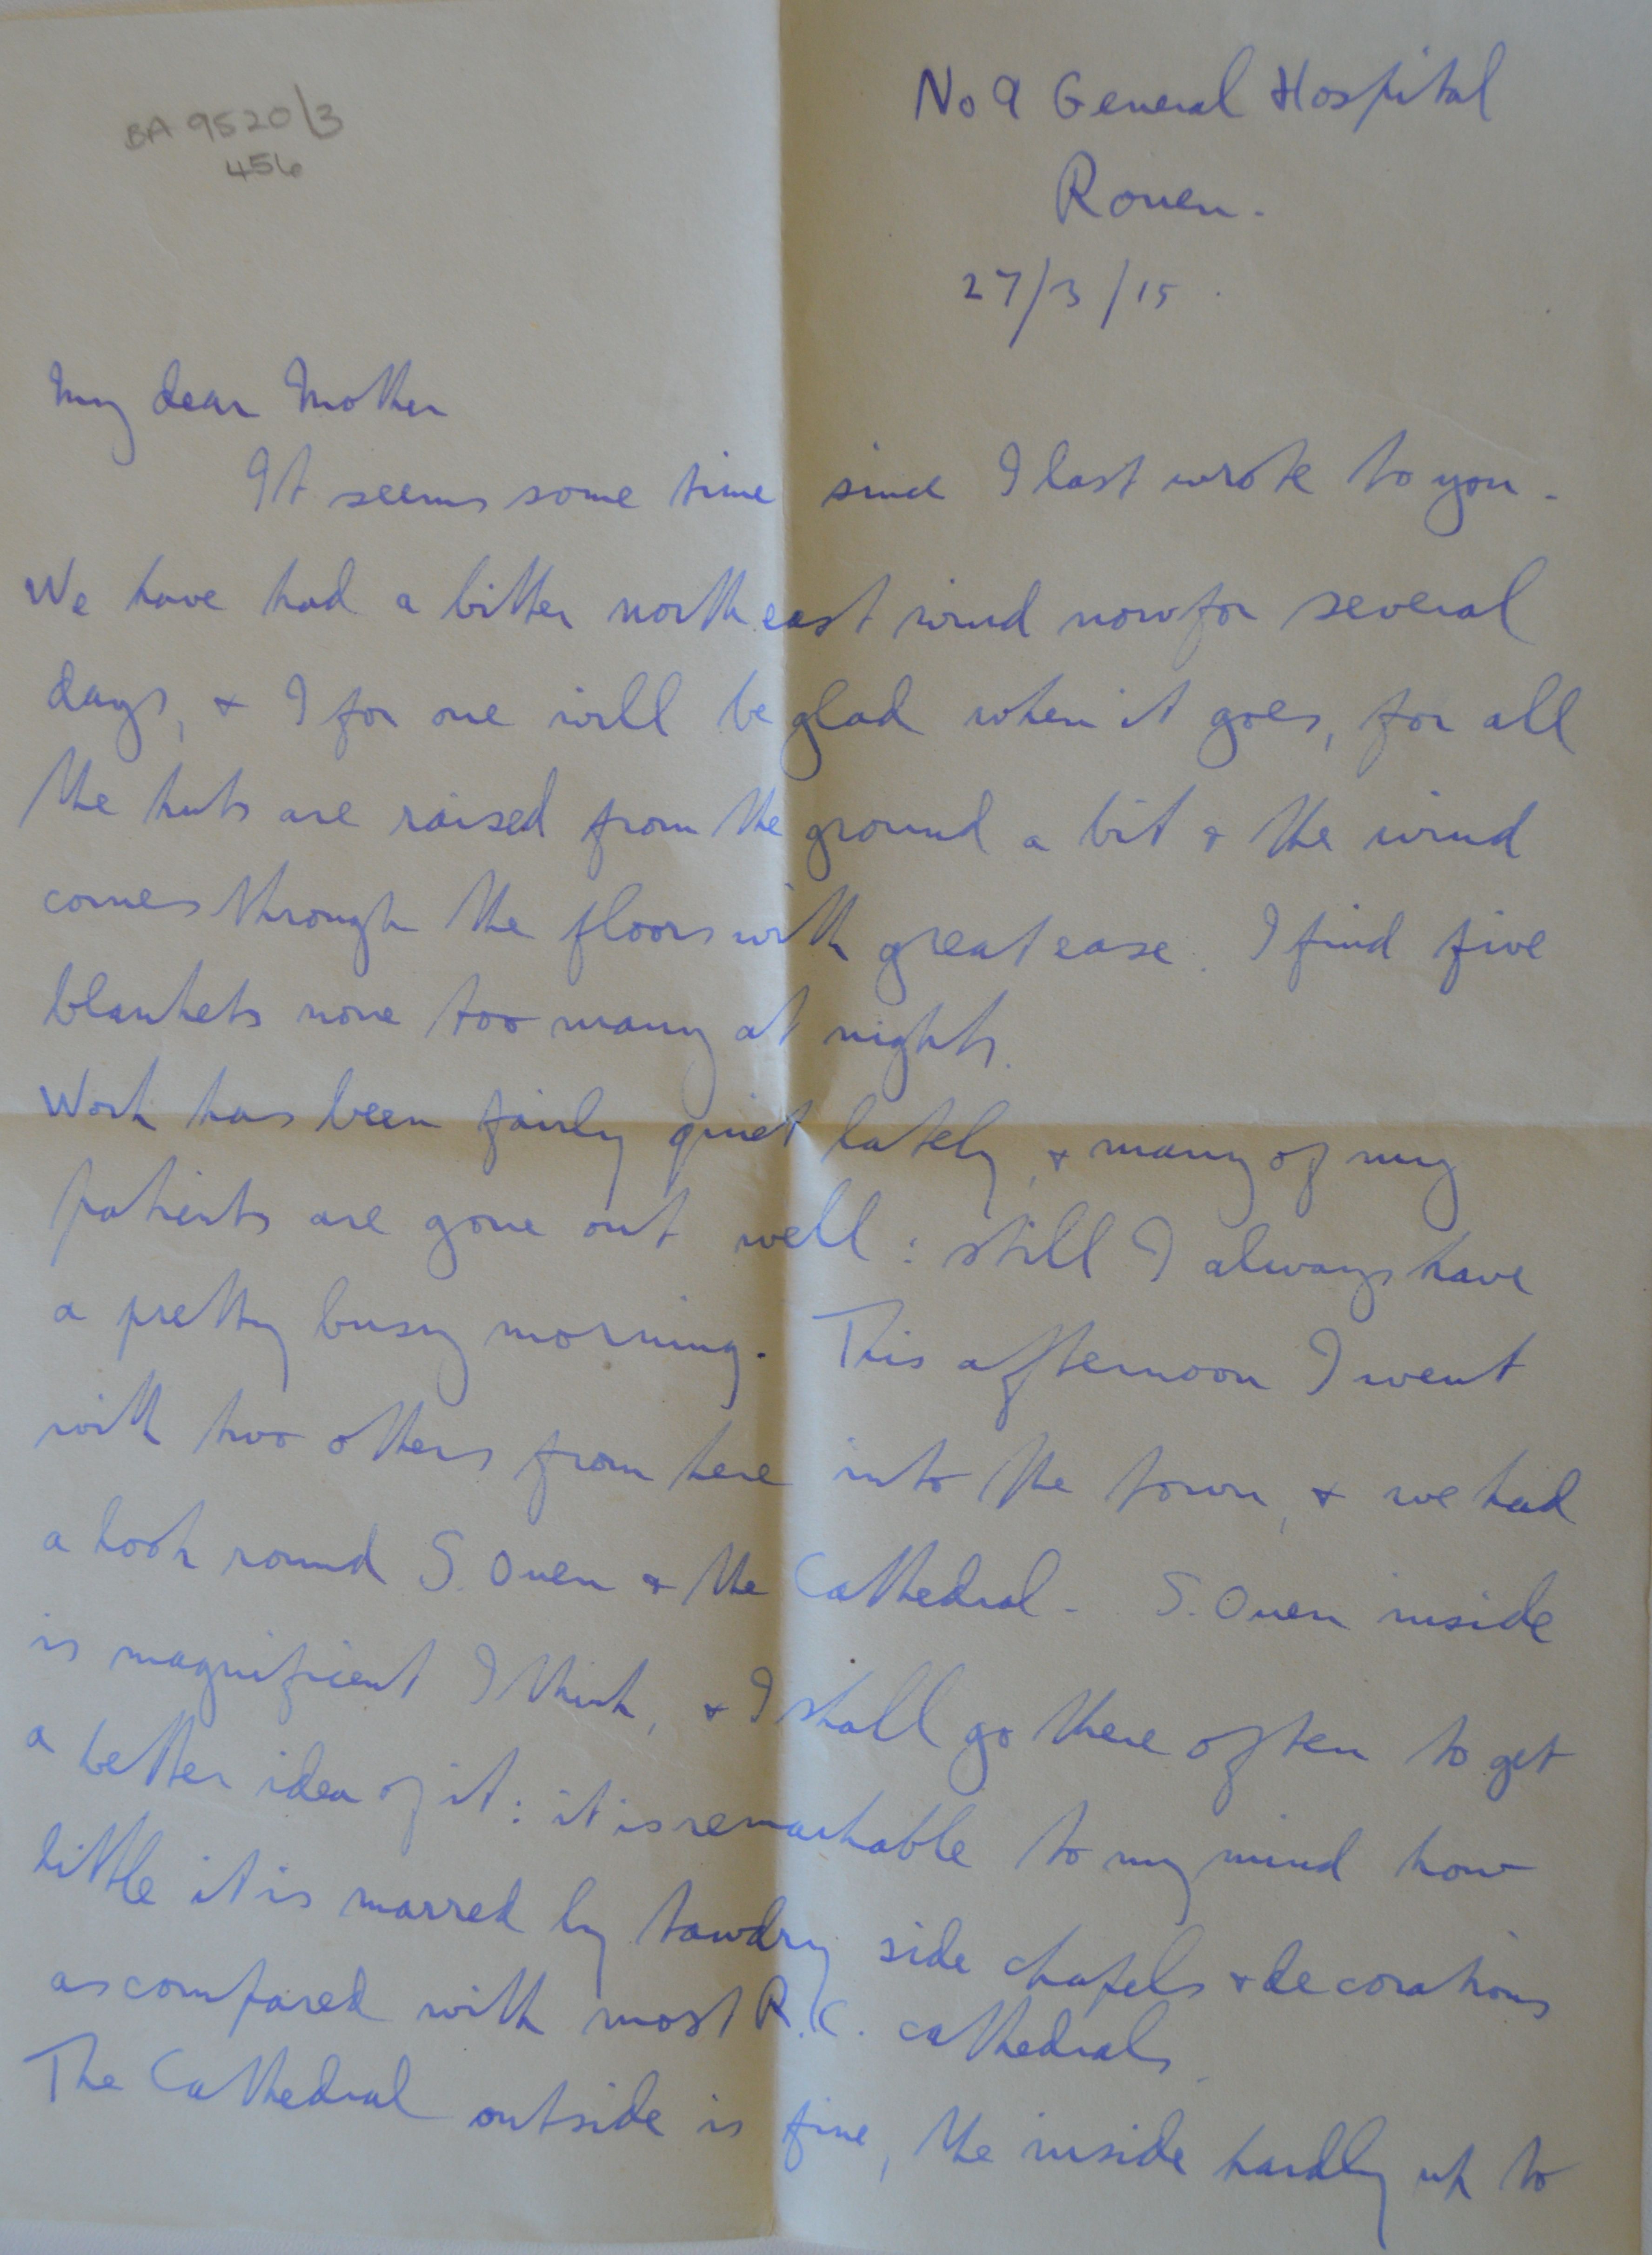 BA 9520/3
456
No 9 General Hospital
Rouen.
27/3/15.
My dear Mother
It seems some time since I last wrote to you.
We have had a bitter north east wind now for several
days, & I for one will be glad when it goes, for all
the huts are raised from the ground a bit & the wind
comes through the floors with great ease. I find five
blankets none too many at nights.
Work has been fairly quiet lately, & many of my
patients are gone out well: still I always have
a pretty busy morning. This afternoon I went
with two others from here into the town, & we had
a look round S. Ouen & the Cathedral. S. Ouen inside
is magnificent I think, & I shall go there often to get
a better idea of it: it is remarkable to my mind how
little it is marred by tawdry side chapels & decorations
as compared with most R.C. cathedrals.
The Cathedral outside is fine, the inside hardly up to